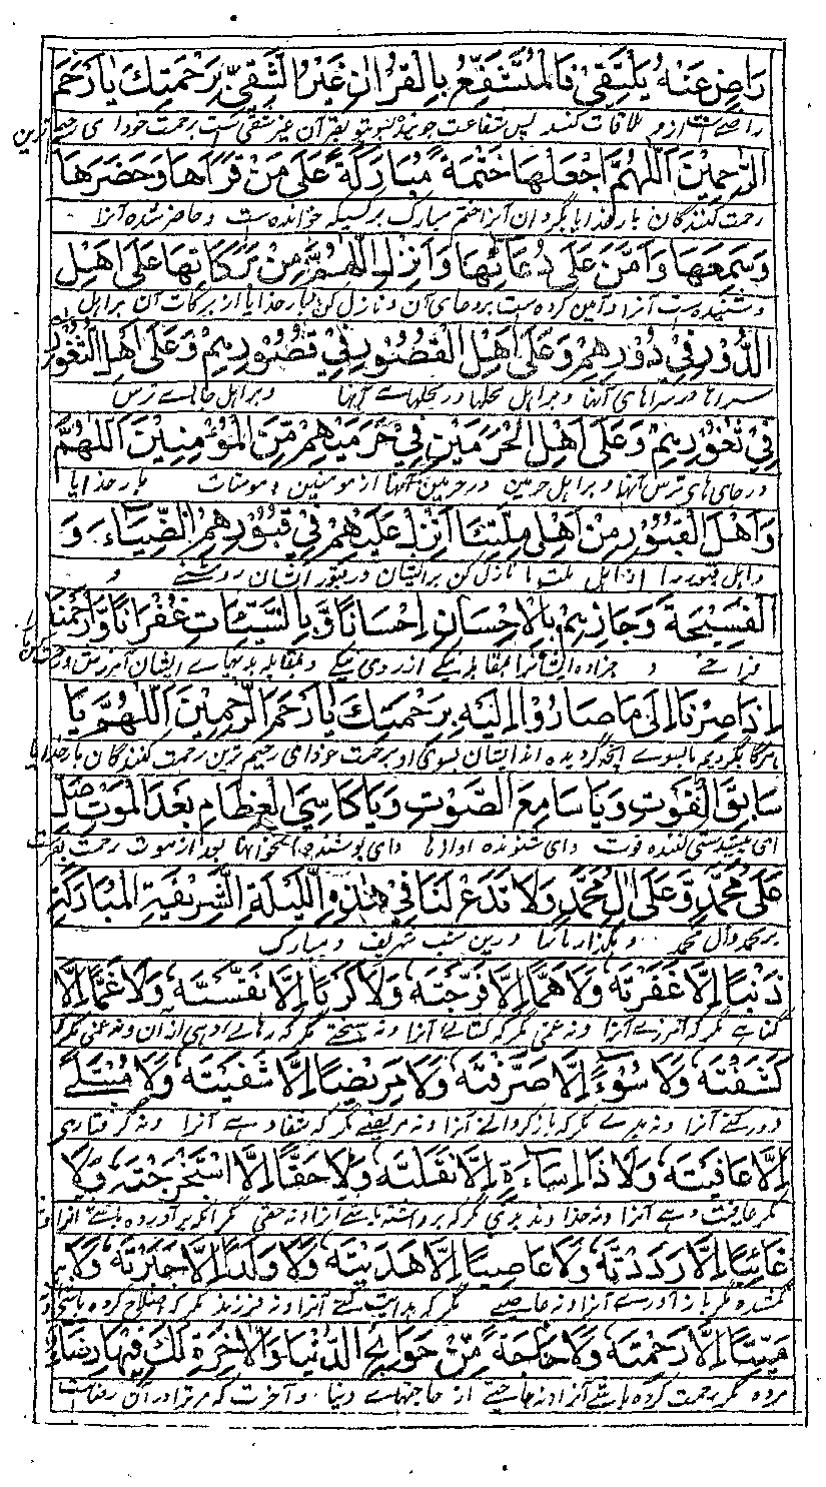 رَاضٍ عَنْهُ يَلْتَقِيْ فَالْمُتَشَفِّعُ بِالْقُرْاٰنِ غَيْرُ الشَّقِيِّ بِرَحْمَتِكَ يَا اَرْحَمَ
راضی است ازو ملاقات کند پس شفاعت جوینده بقرآن غیر شقی است برحمت خود ای رحیم ترین
الرَّاحِمِيْنَ اَللّٰهُمَّ اجْعَلْهَا خَتْمَةً مُبَارَكَةً عَلٰى مَنْ قَرَاَهَا وَحَضَرَهَا
رحمت کنندگان بار خدایا بگردان آنرا ختم مبارک بر کسیکه خوانده است و حاضر شده آنرا
وَسَمِعَهَا وَاَمَّنَ عَلٰى دُعَائِهَا وَاَنْزِلِ اللّٰهُمَّ مِنْ بَرَكَاتِهَا عَلٰى اَهْلِ
و شنیده است آنرا و آمین کرده است بر دعای آن و نازل کن بار خدایا از برکات آن بر اهل
الدُّوْرِ فِيْ دُوْرِهِمْ وَعَلٰى اَهْلِ الْقُصُوْرِ فِيْ قُصُوْرِهِمْ وَعَلٰى اَهْلِ الثُّغُوْرِ
سراها در سراهای آنها و بر اهل محلها در محلهای آنها و بر اهل جای ترس
فِيْ ثُغُوْرِهِمْ وَعَلٰى اَهْلِ الْحَرَمَيْنِ فِيْ حَرَمَيْهِمْ مِّنَ الْمُؤْمِنِيْنَ اَللّٰهُمَّ
در جای های ترس آنها و بر اهل حرمین در حرمین آنها از مومنین و مومنات بار خدایا
وَاَهْلَ الْقُبُوْرِ مِنْ اَهْلِ مِلَّتِنَا اَنْزِلْ عَلَيْهِمْ فِيْ قُبُوْرِهِمُ الضِّيَاءَ وَ
و اهل قبور را از اهل ملت ما نازل کن بر ایشان در قبور ایشان روشنی و
الْفَسِيْحَةَ وَجَازِهِمْ بِالْاِحْسَانِ اِحْسَانًا وَّبِالسَّيِّئَاتِ غُفْرَانًا وَّارْحَمْنَا
فراخی و جزا ده ایشانرا بمقابله نیکی از روی نیکی و بمقابله بدیهای ایشان آمرزش و رحمت کن ما را
اِذَا صِرْنَا اِلٰى مَا صَارُوْا اِلَيْهِ بِرَحْمَتِكَ يَا اَرْحَمَ الرَّاحِمِيْنَ اَللّٰهُمَّ يَا
هرگاه بگردیم ما بسوی آنچه گردیده اند ایشان بسوی او برحمت خود ای رحیم ترین رحمت کنندگان بار خدایا
سَابِقَ الْفَوْتِ وَيَا سَامِعَ الصَّوْتِ وَيَا كَاسِيَ الْعِظَامِ بَعْدَ الْمَوْتِ صَلِّ
ای کننده فوت و ای شنونده آوازها و ای پوشنده استخوانها بعد از موت رحمت بفرست
عَلٰى مُحَمَّدٍ وَّعَلٰى اٰلِ مُحَمَّدٍ وَلَا تَدَعْ لَنَا فِيْ هٰذِهِ اللَّيْلَةِ الشَّرِيْفَةِ الْمُبَارَكَةِ
بر محمد و آل محمد و مگذار ما را درین شب شریف و مبارک
ذَنْبًا اِلَّا غَفَرْتَهٗ وَلَا هَمًّا اِلَّا فَرَّجْتَهٗ وَلَا كَرْبًا اِلَّا نَفَّسْتَهٗ وَلَا غَمًّا اِلَّا
گناهی مگر که آمرزی آنرا و نه غمی مگر که کشایی آنرا و نه سختی مگر که رهایی دهی از آن و نه غمی مگر که
كَشَفْتَهٗ وَلَا سُوْءً اِلَّا صَرَفْتَهٗ وَلَا مَرِيْضًا اِلَّا شَفَيْتَهٗ وَلَا مُبْتَلًى
دور کنی آنرا و نه بدی مگر که باز گردانی آنرا و نه مریضی مگر که شفا دهی آنرا و نه گرفتاری
اِلَّا عَافَيْتَهٗ وَلَا ذَا اِسَاءَةٍ اِلَّا نَقَلْتَهٗ وَلَا حَقًّا اِلَّا اسْتَخْرَجْتَهٗ وَلَا
مگر عافیت دهی آنرا و نه خداوند بدی مگر که برداشته باشی آنرا و نه حقی مگر آنکه بر آورده باشی آنرا و نه
غَائِبًا اِلَّا رَدَدْتَهٗ وَلَا عَاصِيًا اِلَّا هَدَيْتَهٗ وَلَا وَلَدًا اِلَّا جَبَرْتَهٗ وَلَا
گمشده مگر باز آوری آنرا و نه عاصی مگر که هدایت کنی آنرا و نه فرزند مگر که اصلاح کرده باشی و نه
مَيِّتًا اِلَّا رَحِمْتَهٗ وَلَا حَاجَةً مِّنْ حَوَائِجِ الدُّنْيَا وَالْاٰخِرَةِ لَكَ فِيْهَا رِضَاءٌ
مرده مگر رحمت کرده باشی آنرا و نه حاجتی از حاجتهای دنیا و آخرت که مر ترا در آن رضا است